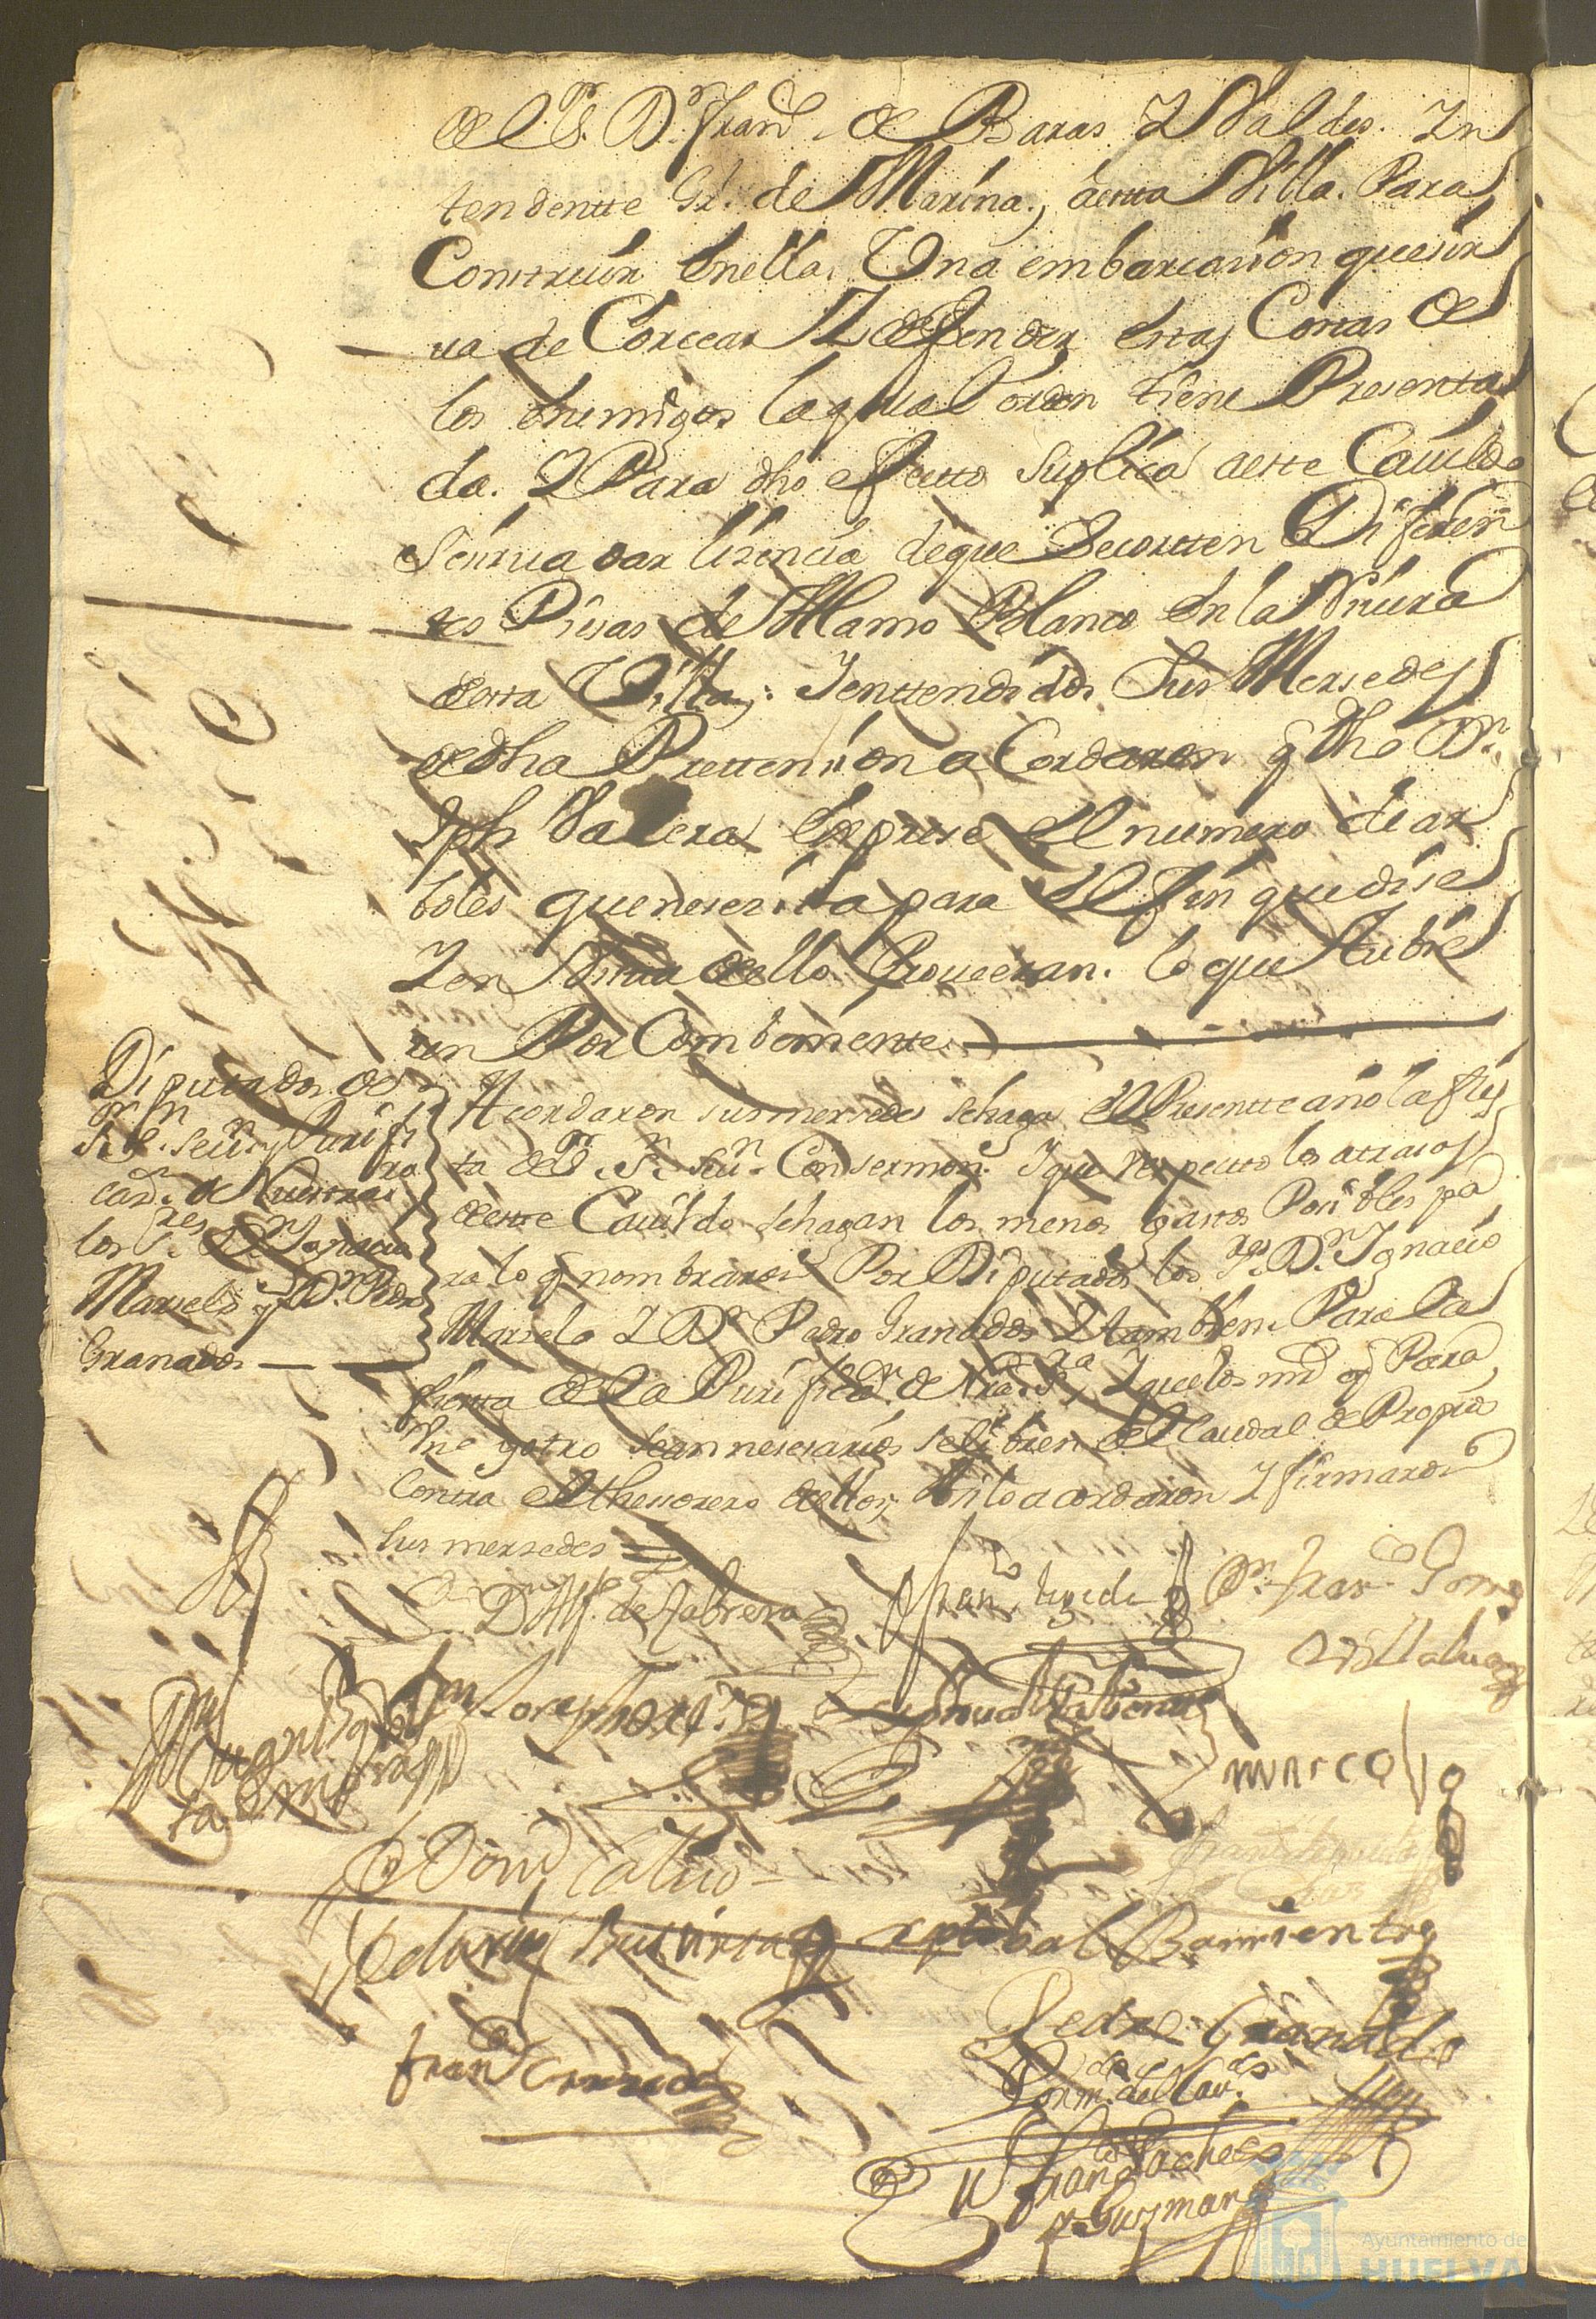 del Sr. Dn. Franco. de Baras Y Valdes. Yn
tendentte Gl. de Marina, a esta Villa. Para
Construir En ella, Una embarcasion que sir
va de Corcear Y defender estas Costas de
los Enemigos la qual orden tiene Presenta
da. Y Para dho efecto Suplica a este Cavildo
se sirva dar lisencia de que Se cortten Diferen
tes Piesas de Alamo Blanco En la Rivera
desta Villa; Y enttendidos Sus Mersedes
de dha Prettension aCordaron q dho Dn.
Jph Valera Exprese el numero de ar
boles que nesesita para el Fin que dise
Y en Vistta dello Proveeran lo que tubie
ren Por Combeniente
Diputados de
Sr. Sn. Sevn. y Purifi
cazn. de Nuestra Sra
los Sres. Dn. Ygnacio
Marselo y Dn. Pedro
Granados
Acordaron sus mersedes se haga el Presentte año la fies
ta del Sr. Sn. Sevn. Con sermon. Y que respectto los atrasos
de este Cavildo se hagan los menos gastos Posibles pa
ra lo q nombraron Por Diputados los Sres. Dn. Ygnacio
Marselo Y Dn. Pedro Granados Y tambien Para la
fiesta de la Purificazn. de Nra. Sra. Y que los mrs q Para
Vno y otro sean nesesarios se libren del Caudal de Propios
Contra el thessorero dellos, Asi lo acordaron Y firmaron
Sus mersedes =
Dn. Alf. de Cabrera
Franco. tegeda
Dn. Franco. Gomez
Villalva
marcos
Domo. Calvo
Xptobal Barrientos
Pedro Granado
Franco.
Franco. Pacheco
y Guzman
Ayuntamiento de
HUELVA